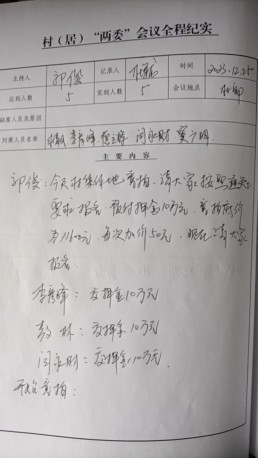 村（居）“两委”会议全程纪实
主持人 郭俊 记录人 时间 2023.12.25
应到人数 5 实到人数 5 会议地点 村部
缺席人员及原因
列席人员名单
主要内容
郭俊：今天村集体地竞拍，请大家按照
要求报名，预付押金10万元，竞拍底价
为1160元，每次加价50元，现在请大家
报名。
李 峰：交押金10万元
林：交押金10万元
闫永财：交押金10万元。
开始竞拍：